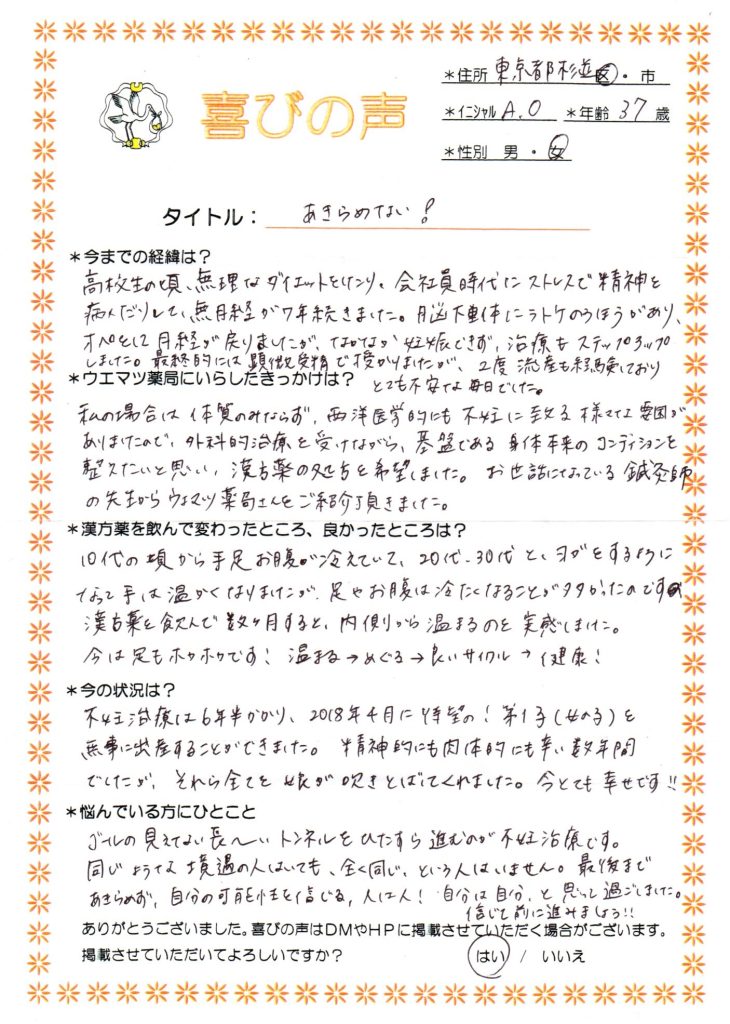 喜びの声
*住所 東京都杉並区・市
*イニシャル A.O *年齢 37 歳
*性別 男・女
タイトル: あきらめない!
*今までの経緯は?
高校生の頃、無理なダイエットをしたり、会社員時代にストレスで精神を
病んだりして、無月経が7年続きました。脳下垂体にラトケのうほうがあり、
オペをして月経が戻りましたが、なかなか妊娠できず、治療もステップアップ
しました。最終的には顕微受精で授かりましたが、2度流産も経験しており
とても不安な毎日でした。
*ウエマツ薬局にいらしたきっかけは?
私の場合は体質のみならず、西洋医学的にも不妊に至る様々な要因が
ありましたので、外科的治療を受けながら、基盤である身体本来のコンディションを
整えたいと思い、漢方薬の処方を希望しました。お世話になっている鍼灸師
の先生からウエマツ薬局さんをご紹介頂きました。
*漢方薬を飲んで変わったところ、良かったところは?
10代の頃から手足お腹が冷えていて、20代、30代と、ヨガをするように
なって手は温かくなりましたが、足やお腹は冷たくなることが多かったのですが
漢方薬を飲んで数ヶ月すると、内側から温まるのを実感しました。
今は足もホカホカです! 温まる→めぐる→良いサイクル→健康!
*今の状況は?
不妊治療は6年半かかり、2018年4月に待望の!第1子(女の子)を
無事に出産することができました。精神的にも肉体的にも辛い数年間
でしたが、それら全てを娘が吹きとばしてくれました。今とても幸せです!!
*悩んでいる方にひとこと
ゴールの見えない長〜いトンネルをひたすら進むのが不妊治療です。
同じような境遇の人はいても、全く同じ、という人はいません。最後まで
あきらめず、自分の可能性を信じる、人は人!自分は自分、と思って過ごしました。
信じて前に進みましょう!!
ありがとうございました。喜びの声はDMやHPに掲載させていただく場合がございます。
掲載させていただいてよろしいですか? はい / いいえ